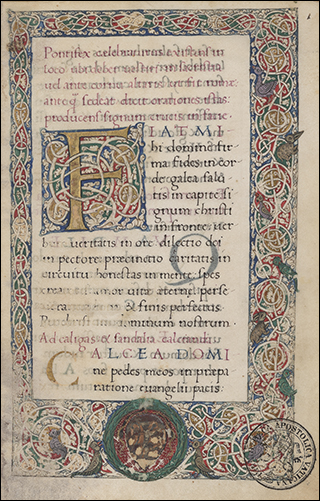 Pontifex celebraturus existens in
loco ubi debet se
vel ante cornu altaris
anteq sedeat dicit orationes istas
producens signum crucis in facie
FIAT MI
hi domine fir
ma fides in cor
de galea salu
tis in capite si
gnum christi
in fronte ver
bum veritatis in ore dilectio dei
in pectore praecinctio caritatis in
circuitu honestas in mente spes
in amor vitae aeternae perse
& finis perfectus
dominum nostrum
Ad caligas & sandalia
CALCEA DOMI
ne pedes meos in praepa
ratione euangelii pacis
APOSTOLICA VATICANA